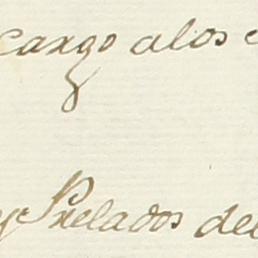 cargo alos
y Prelados del